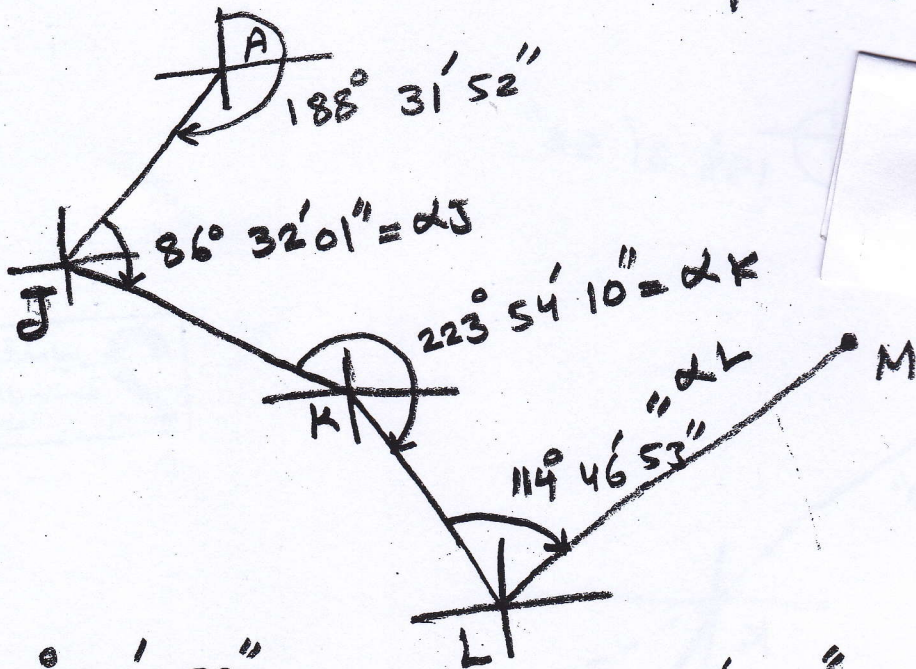 A
188° 31' 52"
86° 32' 01" = αJ
J
223° 54' 10" = αK
K
M
αL
114° 46' 53"
L